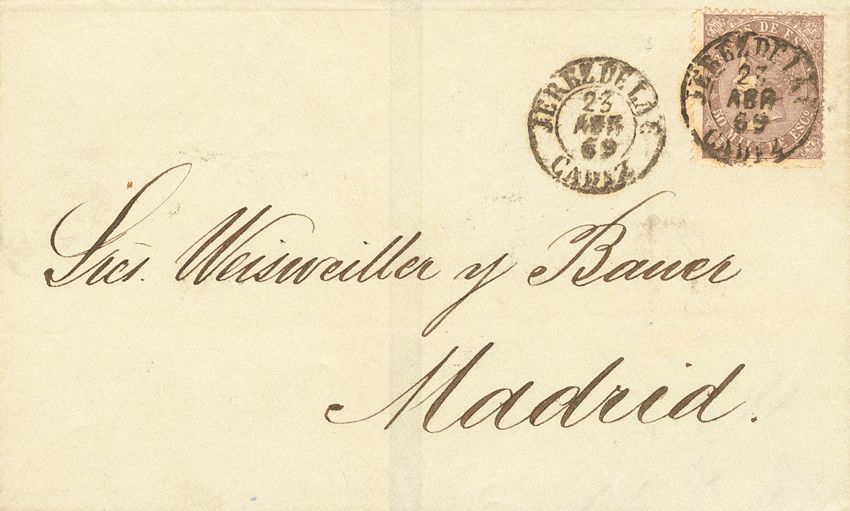 JEREZ DE LA F.
23
ABR
69
CADIZ
S DE ESC
JEREZ DE LA F.
23
ABR
69
CADIZ
50 MIL
Sres. Weisweiller y Bauer
Madrid.